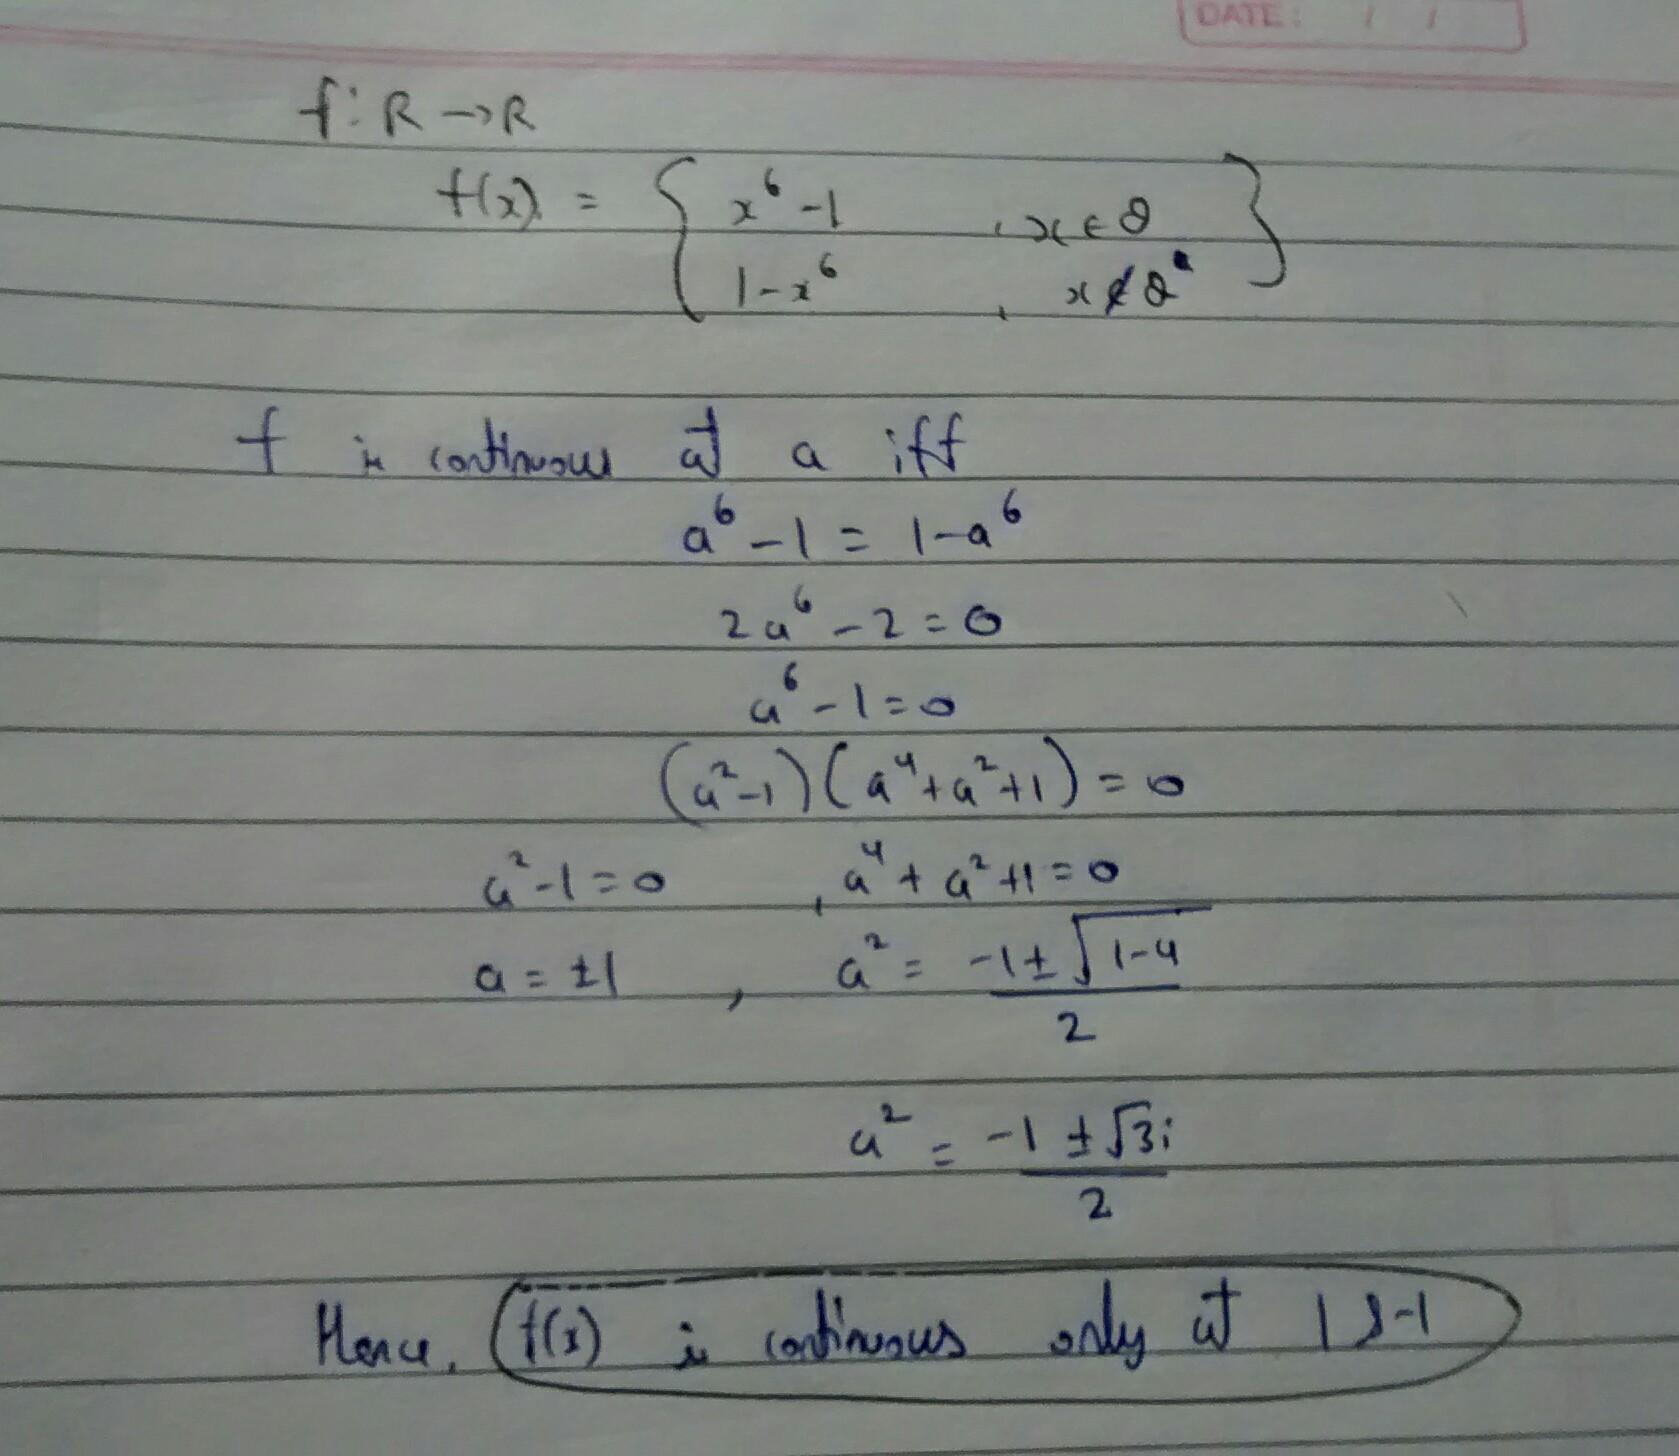 DATE: / /
f: R → R
f(x) = { x⁶ - 1 , x ∈ Q
1 - x⁶ , x ∉ Q }
f is continuous at a iff
a⁶ - 1 = 1 - a⁶
2a⁶ - 2 = 0
a⁶ - 1 = 0
(a² - 1)(a⁴ + a² + 1) = 0
a² - 1 = 0 , a⁴ + a² + 1 = 0
a = ±1 , a² = (-1 ± √(1-4))/2
a² = (-1 ± √3i)/2
Hence, f(x) is continuous only at 1 & -1